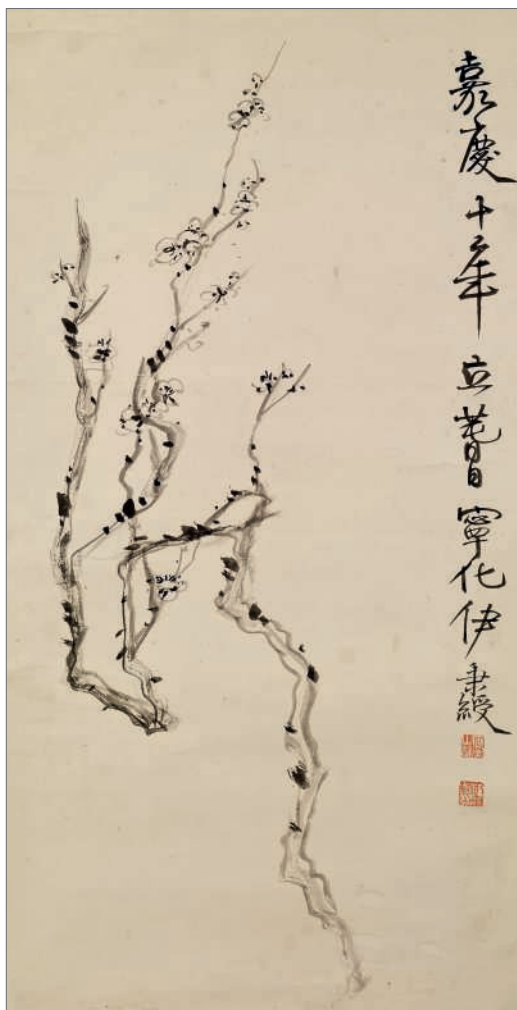 嘉慶十年立萅日寧化伊秉綬